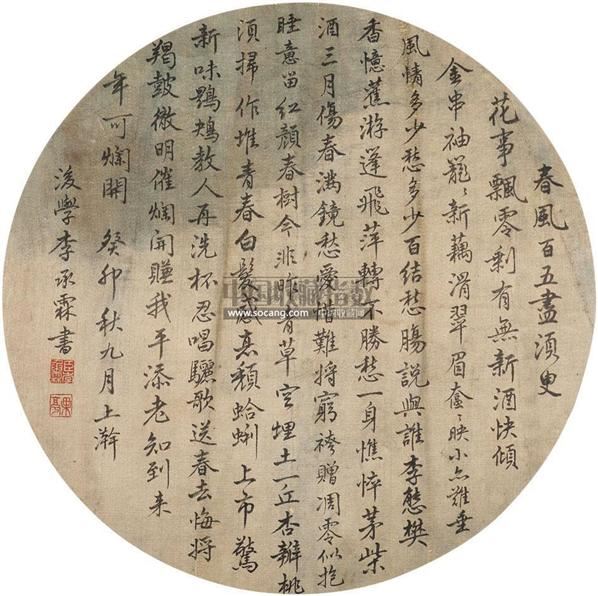 春風百五盡須臾
花事飄零剩有無新酒快傾
金串袖籠〻新藕滑翠眉奩〻映小〻難垂
風情多少愁多少百結愁腸說與誰李憨樊
香憶舊游蓬飛萍轉不勝愁一身憔悴茅柴
酒三月傷春滿鏡愁愛惜難將窮袴贈凋零似抱
睡意留紅顏春樹今非昨青草空埋土一丘杏瓣桃
須掃作堆青春白髮感衰顏蛤蜊上市驚
新味鶗鴂教人再洗杯忍唱驪歌送春去悔將
羯鼓徹明催爛開賺我平添老知到来
年可爛開 癸卯秋九月上澣
後學李承霖書
中国收藏指数
www.socang.com